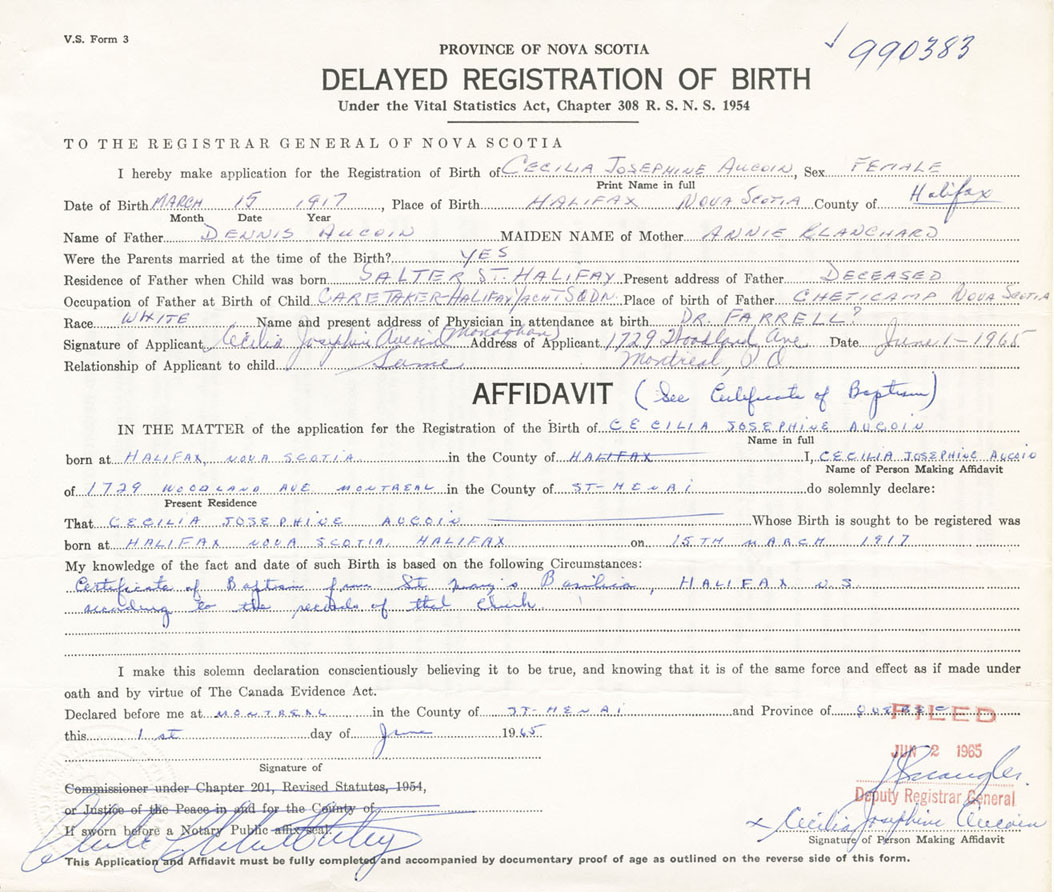 V.S. Form 3
990383
PROVINCE OF NOVA SCOTIA
DELAYED REGISTRATION OF BIRTH
Under the Vital Statistics Act, Chapter 308 R. S. N. S. 1954
TO THE REGISTRAR GENERAL OF NOVA SCOTIA
I hereby make application for the Registration of Birth of CECILIA JOSEPHINE AUCOIN, Sex FEMALE
Print Name in full
Date of Birth MARCH 15 1917, Place of Birth HALIFAX NOVA SCOTIA County of Halifax
Month Date Year
Name of Father DENNIS AUCOIN MAIDEN NAME of Mother ANNIE BLANCHARD
Were the Parents married at the time of the Birth? YES
Residence of Father when Child was born SALTER ST. HALIFAX Present address of Father DECEASED
Occupation of Father at Birth of Child CARETAKER-HALIFAX YACHT SQDN. Place of birth of Father CHETICAMP NOVA SCOTIA
Race WHITE Name and present address of Physician in attendance at birth DR. FARRELL?
Signature of Applicant Cecilia Josephine Aucoin (Monaghan) Address of Applicant 1729 Woodland Ave Date June 1-1965
Relationship of Applicant to child Same Montreal, P Q
AFFIDAVIT (See Certificate of Baptism)
IN THE MATTER of the application for the Registration of the Birth of CECILIA JOSEPHINE AUCOIN
Name in full
born at HALIFAX, NOVA SCOTIA in the County of HALIFAX I, CECILIA JOSEPHINE AUCOIN
Name of Person Making Affidavit
of 1729 WOODLAND AVE MONTREAL in the County of ST-HENRI do solemnly declare:
Present Residence
That CECILIA JOSEPHINE AUCOIN Whose Birth is sought to be registered was
born at HALIFAX NOVA SCOTIA, HALIFAX on 15TH MARCH 1917
My knowledge of the fact and date of such Birth is based on the following Circumstances:
Certificate of Baptism from St Mary's Basilica, HALIFAX N.S.
according to the records of that Church.
I make this solemn declaration conscientiously believing it to be true, and knowing that it is of the same force and effect as if made under
oath and by virtue of The Canada Evidence Act.
Declared before me at MONTREAL in the County of ST-HENRI and Province of QUEBEC
FILED
this 1st day of June 1965
JUN 2 1965
Signature of
Commissioner under Chapter 201, Revised Statutes, 1954,
Deputy Registrar General
or Justice of the Peace in and for the County of
x Cecilia Josephine Aucoin
If sworn before a Notary Public affix seal.
Signature of Person Making Affidavit
This Application and Affidavit must be fully completed and accompanied by documentary proof of age as outlined on the reverse side of this form.